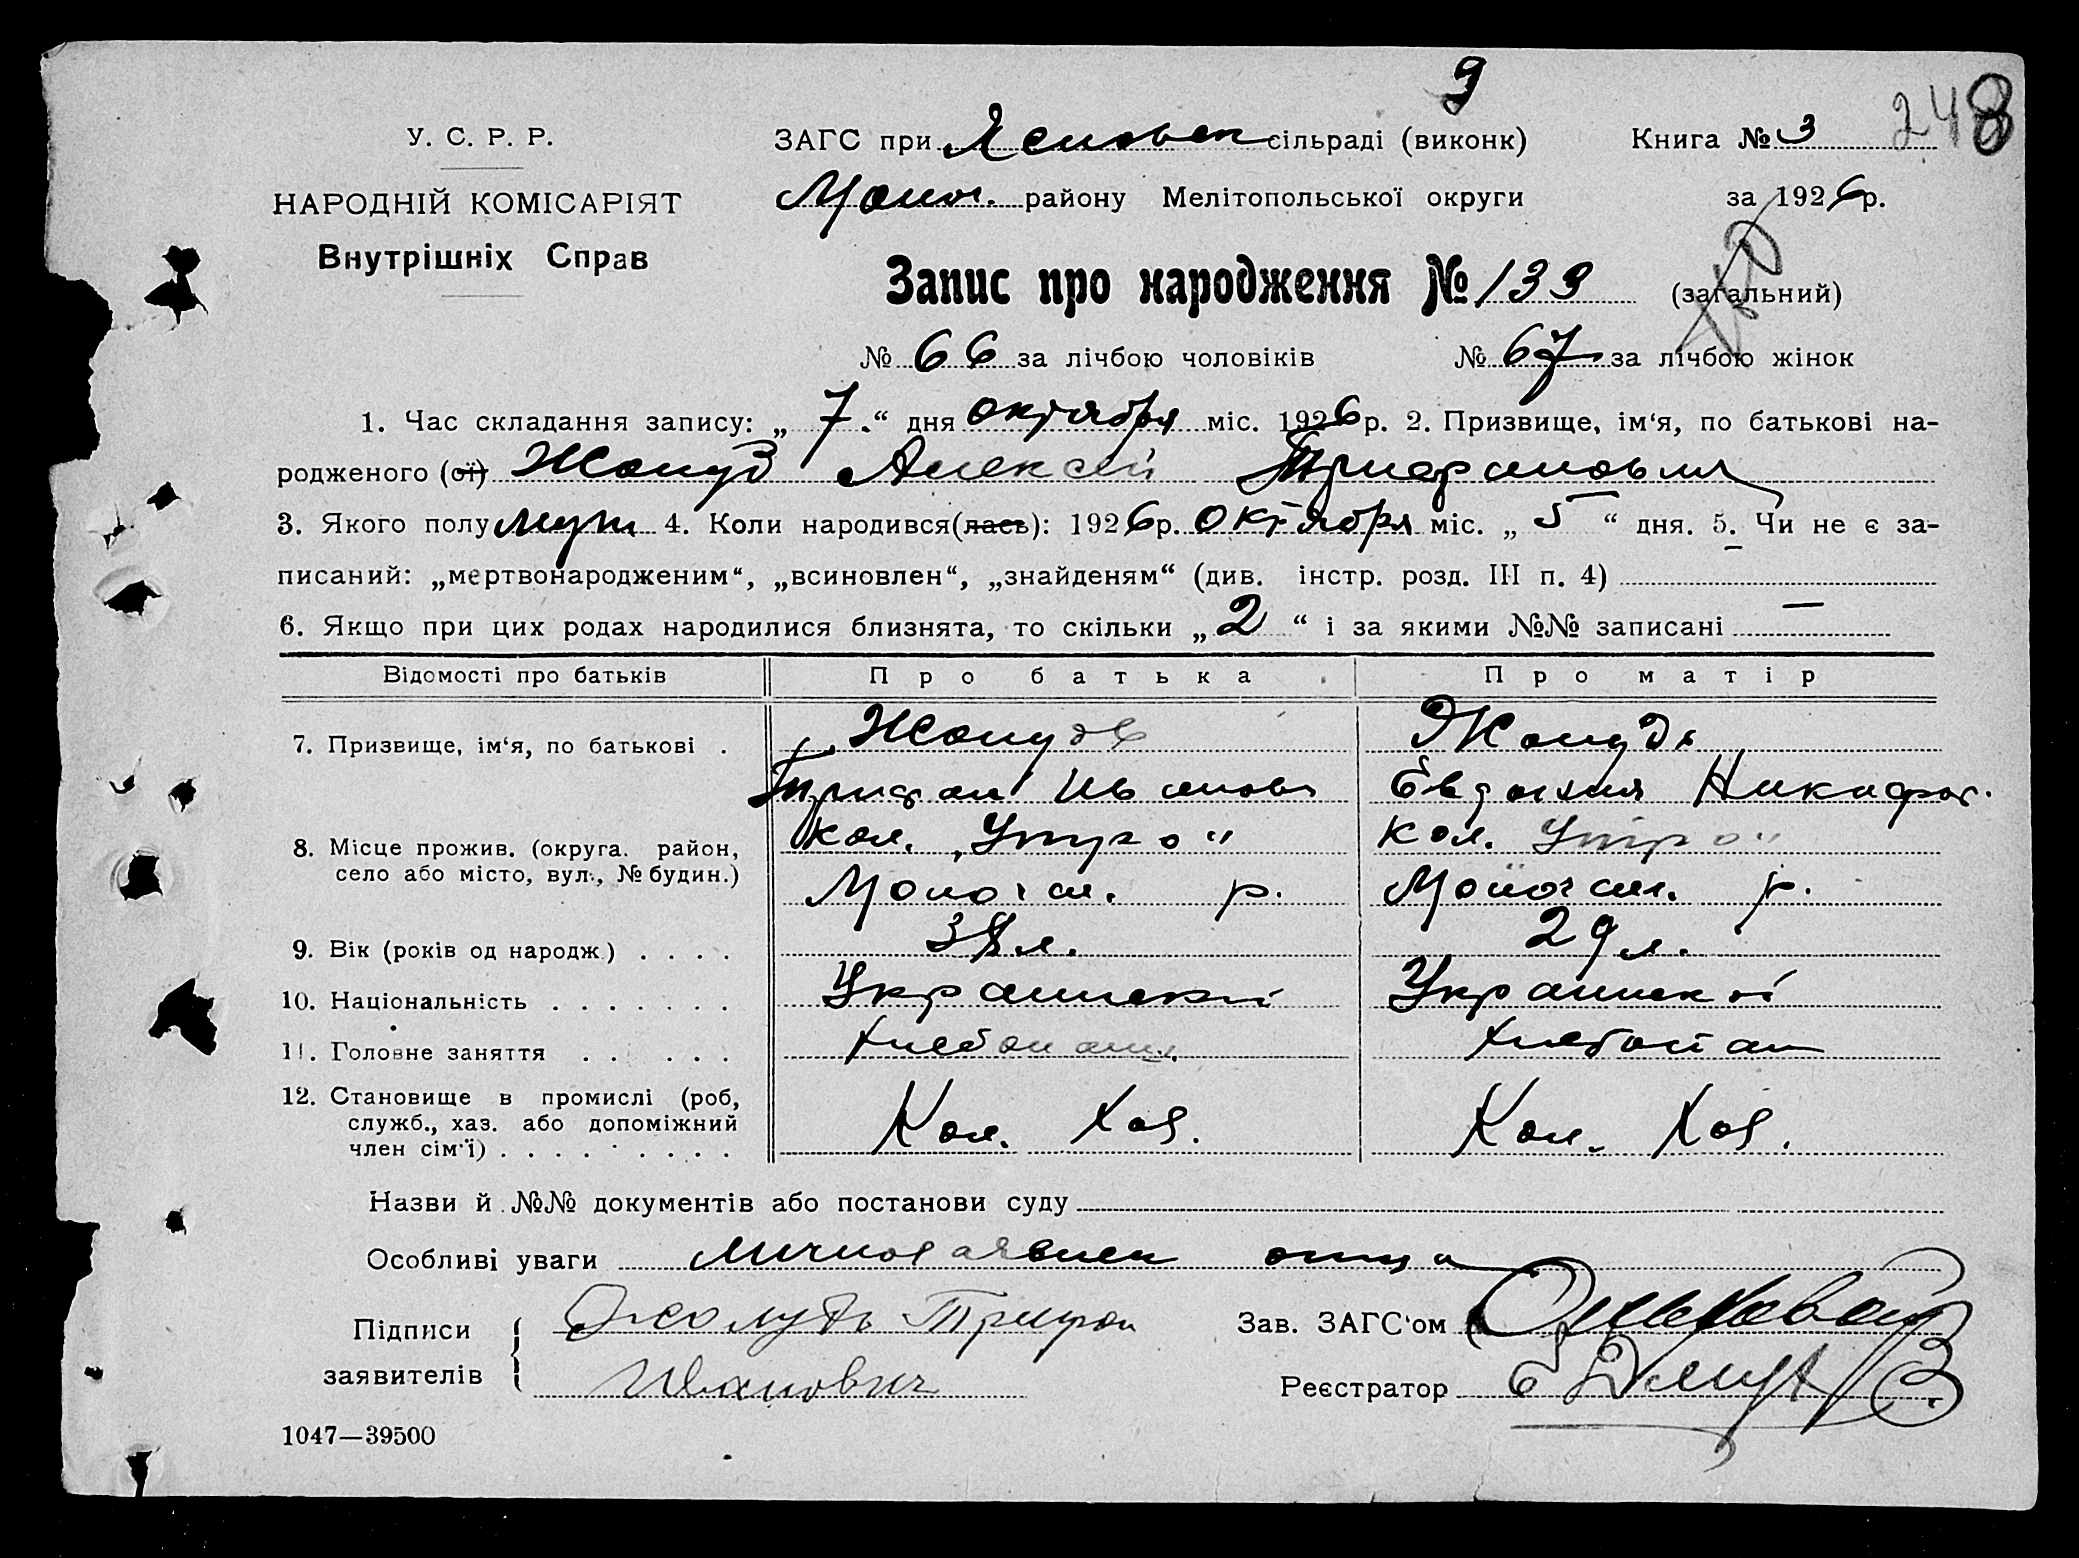 9
248
У. С. Р. Р.
НАРОДНІЙ КОМІСАРІЯТ
Внутрішніх Справ
ЗАГС при сільраді (виконк) Книга № 3
Молоч. району Мелітопольської округи за 1926 р.
Запис про народження № 133 (загальний)
№ 66 за лічбою чоловіків № 67 за лічбою жінок
1. Час складання запису: „ 7 “ дня октября міс. 1926 р. 2. Призвище, ім‘я, по батькові на-
родженого (ої) Жолудь Алексей Трифанович
3. Якого полу муж. 4. Коли народився(лась): 1926 р. октября міс. „ 5 “ дня. 5. Чи не є за-
писаний: „мертвонародженим“, „всиновлен“, „знайденям“ (див. інстр. розд. III п. 4) —
6. Якщо при цих родах народилися близнята, то скільки „ 2 “ і за якими №№ записані —
Відомості про батьків Про батька Про матір
7. Призвище, ім‘я, по батькові . Жолудь Жолудь
Трифан Иванов. Евдокия Никифор.
8. Місце прожив. (округа. район, село або місто, вул., № будин.) кол. „Утро“ кол. Утро“
Молочан. р. Молочан. р.
9. Вік (років од народж.) . . . . 38 л. 29 л.
10. Національність . . . . . . . Украинский Украинск
11. Головне заняття . . . . . Хлебопаш. Хлебопаш
12. Становище в промислі (роб, служб., хаз. або допоміжний член сім'ї) . . . . . . . . . Кол. Хоз. Кол. Хоз.
Назви й №№ документів або постанови суду
Особливі уваги личное заявлен отца
Підписи заявителів { Жолудь Трифон
Иванович
Зав. ЗАГС‘ом
Реєстратор
1047—39500